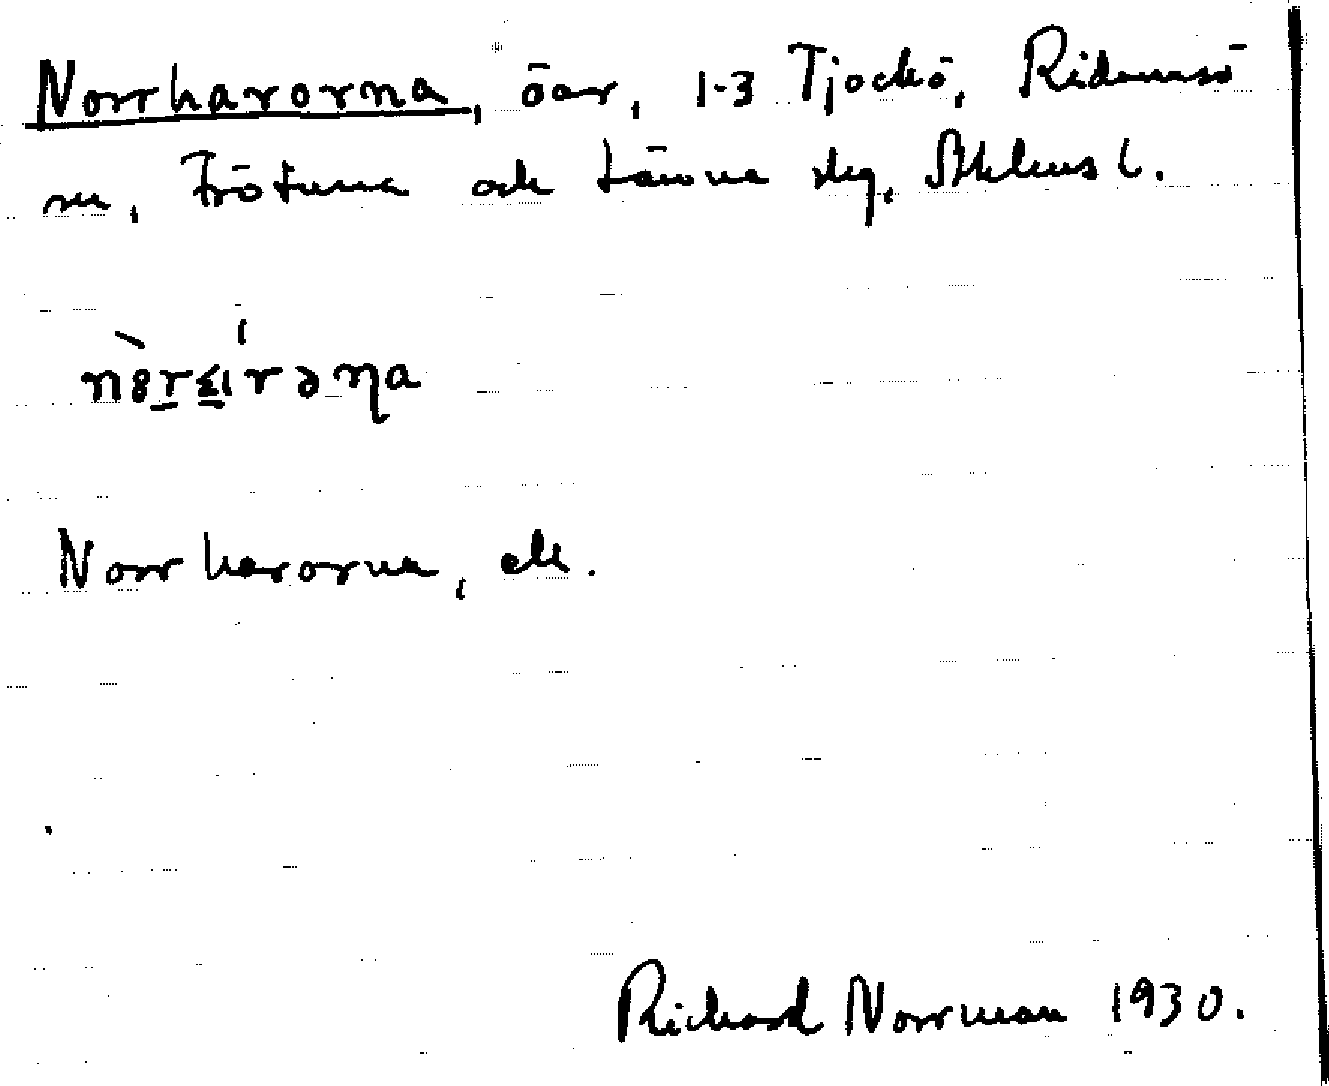 Norrhararna, öar, 1-3 Tjockö, Ridamsö
sn, Frötuna och Länna skg, Sthlms l.
Norrhararna, ek.
Richard Norrman 1930.